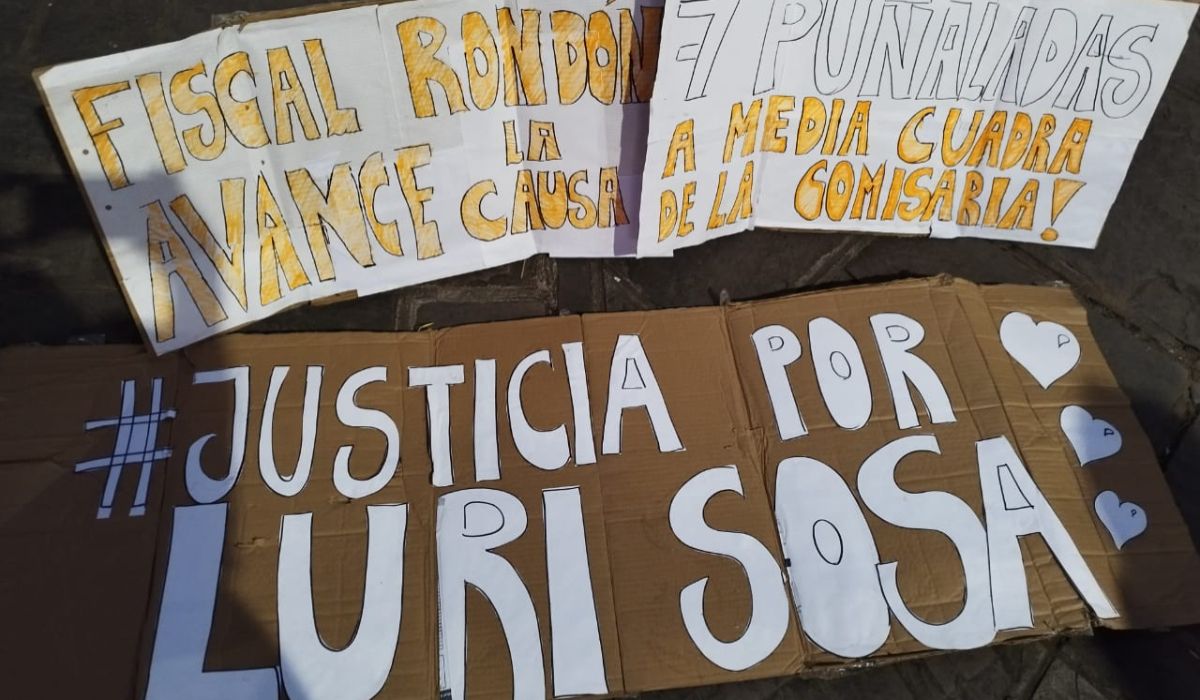 FISCAL RONDÓN
AVANCE LA CAUSA
7 PUÑALADAS
A MEDIA CUADRA
DE LA COMISARIA!
#JUSTICIA POR
LURI SOSA